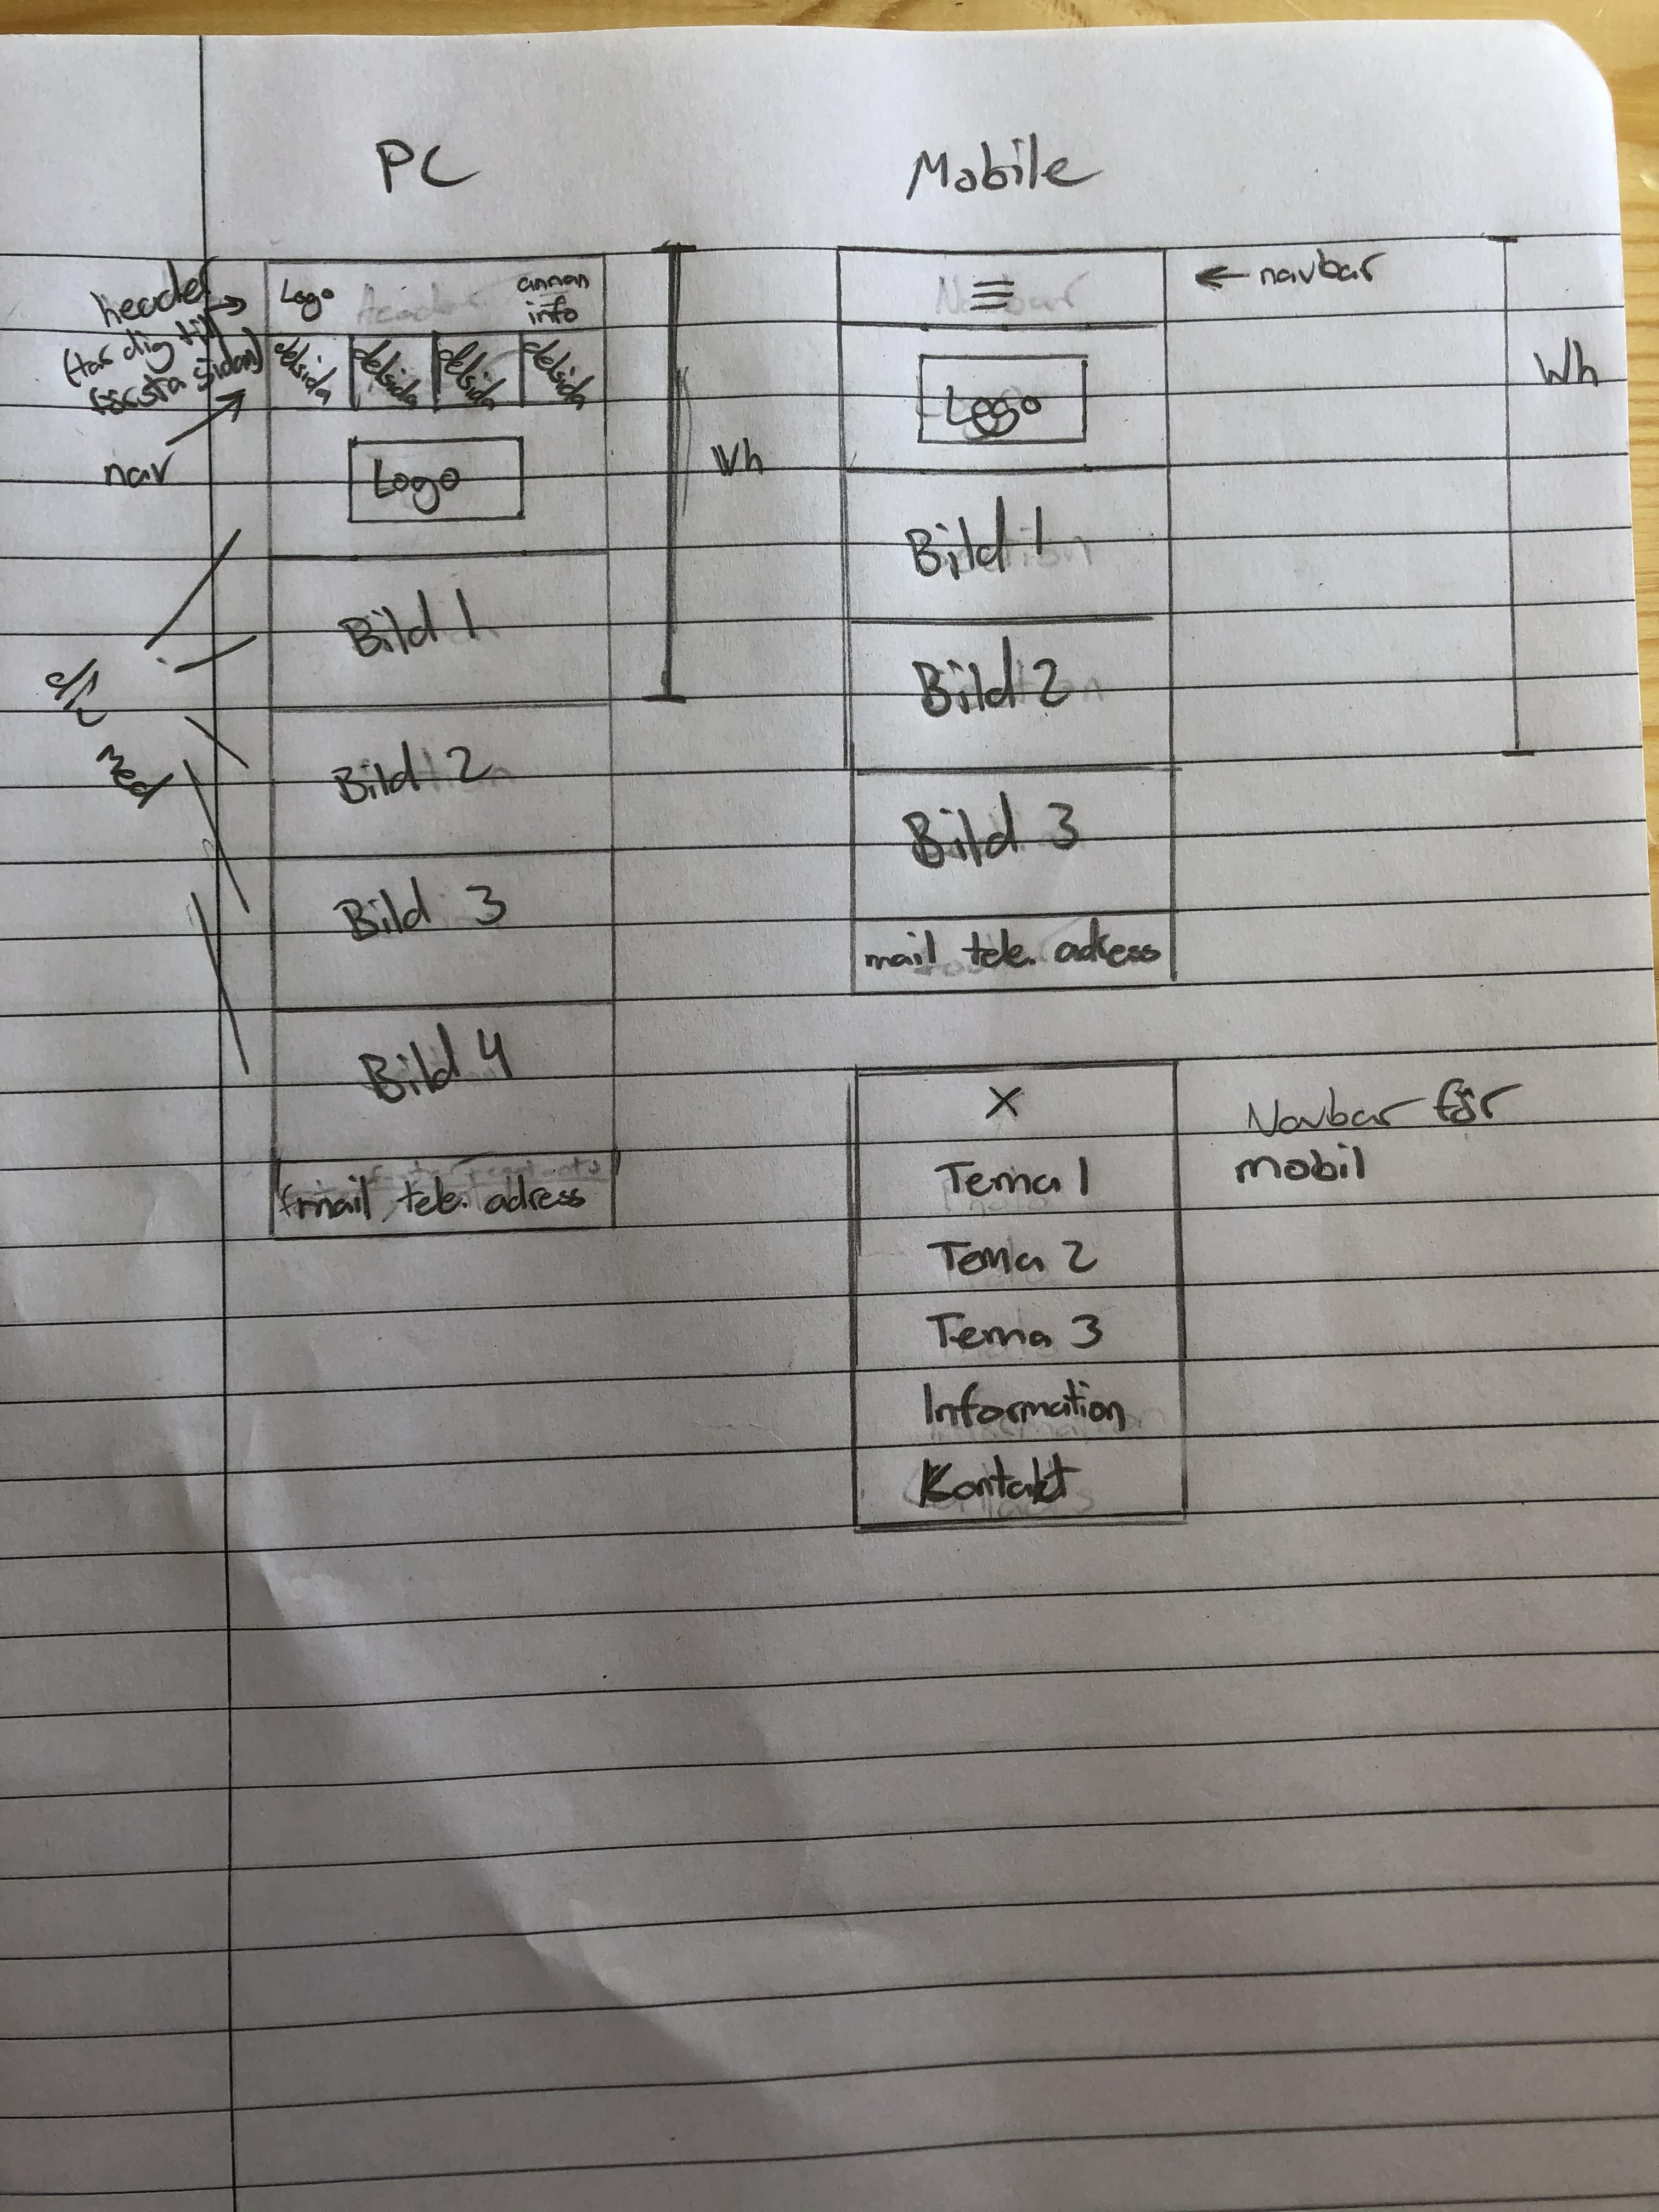 PC
header
(tar dig till
första sidan)
nav
Logo
annan
info
delsida
delsida
delsida
delsida
Logo
Wh
Bild 1
Bild 2
Bild 3
Bild 4
mail tele. adress
med
Mobile
navbar
Logo
Wh
Bild 1
Bild 2
Bild 3
mail tele. adress
X
Tema 1
Tema 2
Tema 3
Information
Kontakt
Navbar för
mobil